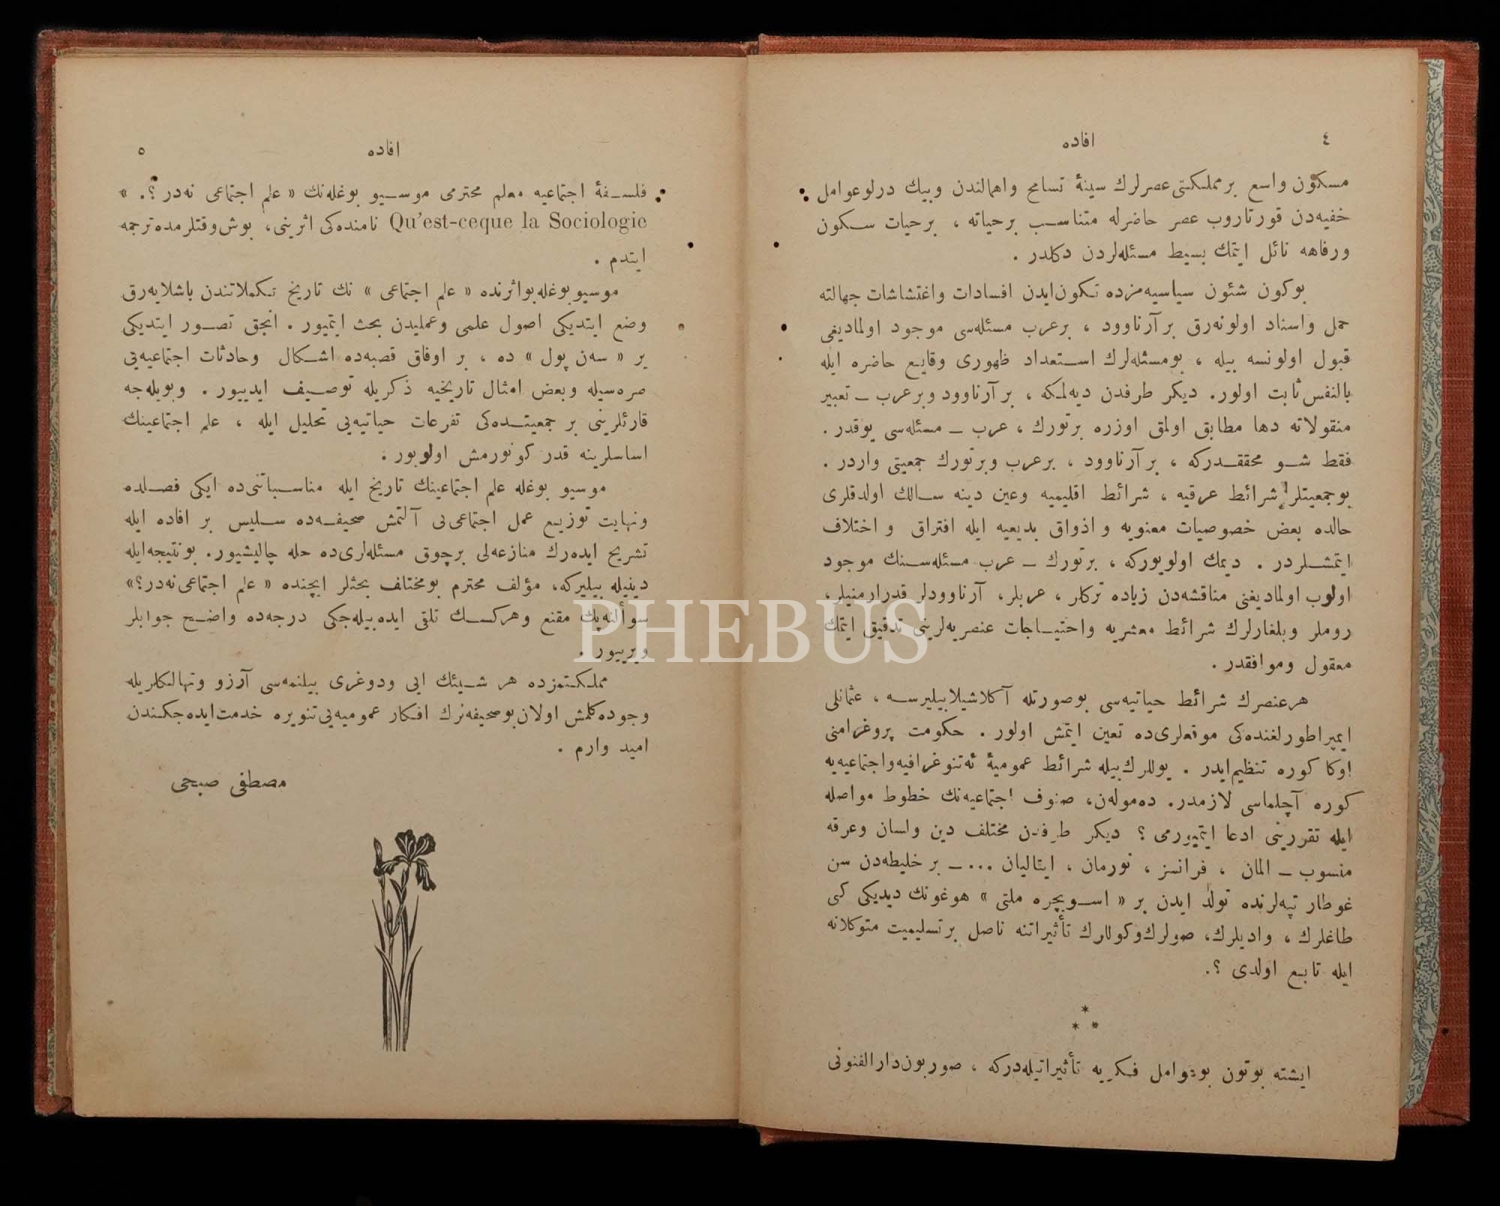 ٤
افاده
مسكون واسع بر مملكتی عصرلرك سینهٔ تسامح واهمالندن وبیك درلو عوامل
خفیه‌دن قورتاروب عصر حاضرله متناسب بر حیاته ، بر حیات سكون
ورفاهه نائل ایتمك بسیط مسئله‌لردن دكلدر .
بوكون شئون سیاسیه‌مزده تكون ایدن افسادات واغتشاشات جهالته
حمل واسناد اولونه‌رق بر آرناوود ، بر عرب مسئله‌سی موجود اولمادیغی
قبول اولونسه بیله ، بو مسئله‌لرك استعداد ظهوری وقایع حاضره ایله
بالنفس ثابت اولور. دیكر طرفدن دیه‌لمكه ، بر آرناوود وبر عرب ــ تعبیر
منقولاته دها مطابق اولمق اوزره بر تورك ، عرب ــ مسئله‌سی یوقدر .
فقط شو محققدركه ، بر آرناوود ، بر عرب وبر تورك جمعیتی واردر .
بو جمعیتلر شرائط عرقیه ، شرائط اقلیمیه وعین دینه سالك اولدقلری
حالده بعض خصوصیات معنویه و اذواق بدیعیه ایله افتراق و اختلاف
ایتمشلردر . دیمك اولویوركه ، بر تورك ــ عرب مسئله‌سنك موجود
اولوب اولمادیغنی مناقشه‌دن زیاده تركلر ، عربلر، آرناوودلر قدر ارمنیلر ،
روملر وبلغارلرك شرائط معشریه واحتیاجات عنصریه‌لرینی تدقیق ایتمك
معقول وموافقدر .
هر عنصرك شرائط حیاتیه‌سی بو صورتله آكلاشیلابیلیرسه ، عثمانلی
ایمپراطورلغنده‌كی موقعلری‌ده تعین ایتمش اولور . حكومت پروغرامنی
اوكا كوره تنظیم ایدر . یوللرك بیله شرائط عمومیهٔ ئه‌تنوغرافیه واجتماعیه‌یه
كوره آچلماسی لازمدر. ده‌موله‌ن، صنوف اجتماعیه‌نك خطوط مواصله
ایله تقررینی ادعا ایتمیورمی ؟ دیكر طرفدن مختلف دین ولسان وعرقه
منسوب ــ المان ، فرانسز ، نورمان ، ایتالیان ... ــ بر خلیطه‌دن سن
غوطار تپه‌لرنده تولد ایدن بر « اسویچره ملتی » هوغونك دیدیكی كبی
طاغلرك ، وادیلرك، صولرك وكوللرك تأثیراتنه ناصل بر تسلیمیت متوكلانه
ایله تابع اولدی ؟.
* * *
ایشته بوتون بو عوامل فكریه تأثیراتیله‌دركه ، صوربون دارالفنونی
٥
افاده
فلسفهٔ اجتماعیه معلم محترمی موسیو بوغله‌نك « علم اجتماعی نه‌در ؟. »
Qu'est-ceque la Sociologie نامنده‌كی اثرینی، بوش وقتلرمده ترجمه
ایتدم .
موسیو بوغله بو اثرنده « علم اجتماعی » نك تاریخ تكملاتندن باشلایه‌رق
وضع ایتدیكی اصول علمی وعملیدن بحث ایتمیور . انجق تصور ایتدیكی
بر « سه‌ن پول » ده ، بر اوفاق قصبه‌ده اشكال وحادثات اجتماعیه‌یی
صره‌سیله وبعض امثال تاریخیه ذكریله توصیف ایدییور . وبویله‌جه
قارئلرینی بر جمعیتده‌كی تفرعات حیاتیه‌یی تحلیل ایله ، علم اجتماعینك
اساسلرینه قدر كوتورمش اولویور .
موسیو بوغله علم اجتماعینك تاریخ ایله مناسباتنی‌ده ایكی فصلده
ونهایت توزیع عمل اجتماعی‌یی آلتمش صحیفه‌ده سلیس بر افاده ایله
تشریح ایده‌رك منازعه‌لی بر چوق مسئله‌لری‌ده حله چالیشیور. بو نتیجه ایله
دینیله بیلیركه، مؤلف محترم بو مختلف بحثلر ایچنده « علم اجتماعی نه‌در؟»
سوألنه پك مقنع وهر كسك تلقی ایده‌بیله‌جكی درجه‌ده واضح جوابلر
ویرییور .
مملكتمزده هر شیئك ایی ودوغری بیلنمه‌سی آرزو وتهالكلریله
وجوده كلمش اولان بو صحیفه‌لرك افكار عمومیه‌یی تنویره خدمت ایده‌جكندن
امید وارم .
مصطفی صبحی
PHEBUS